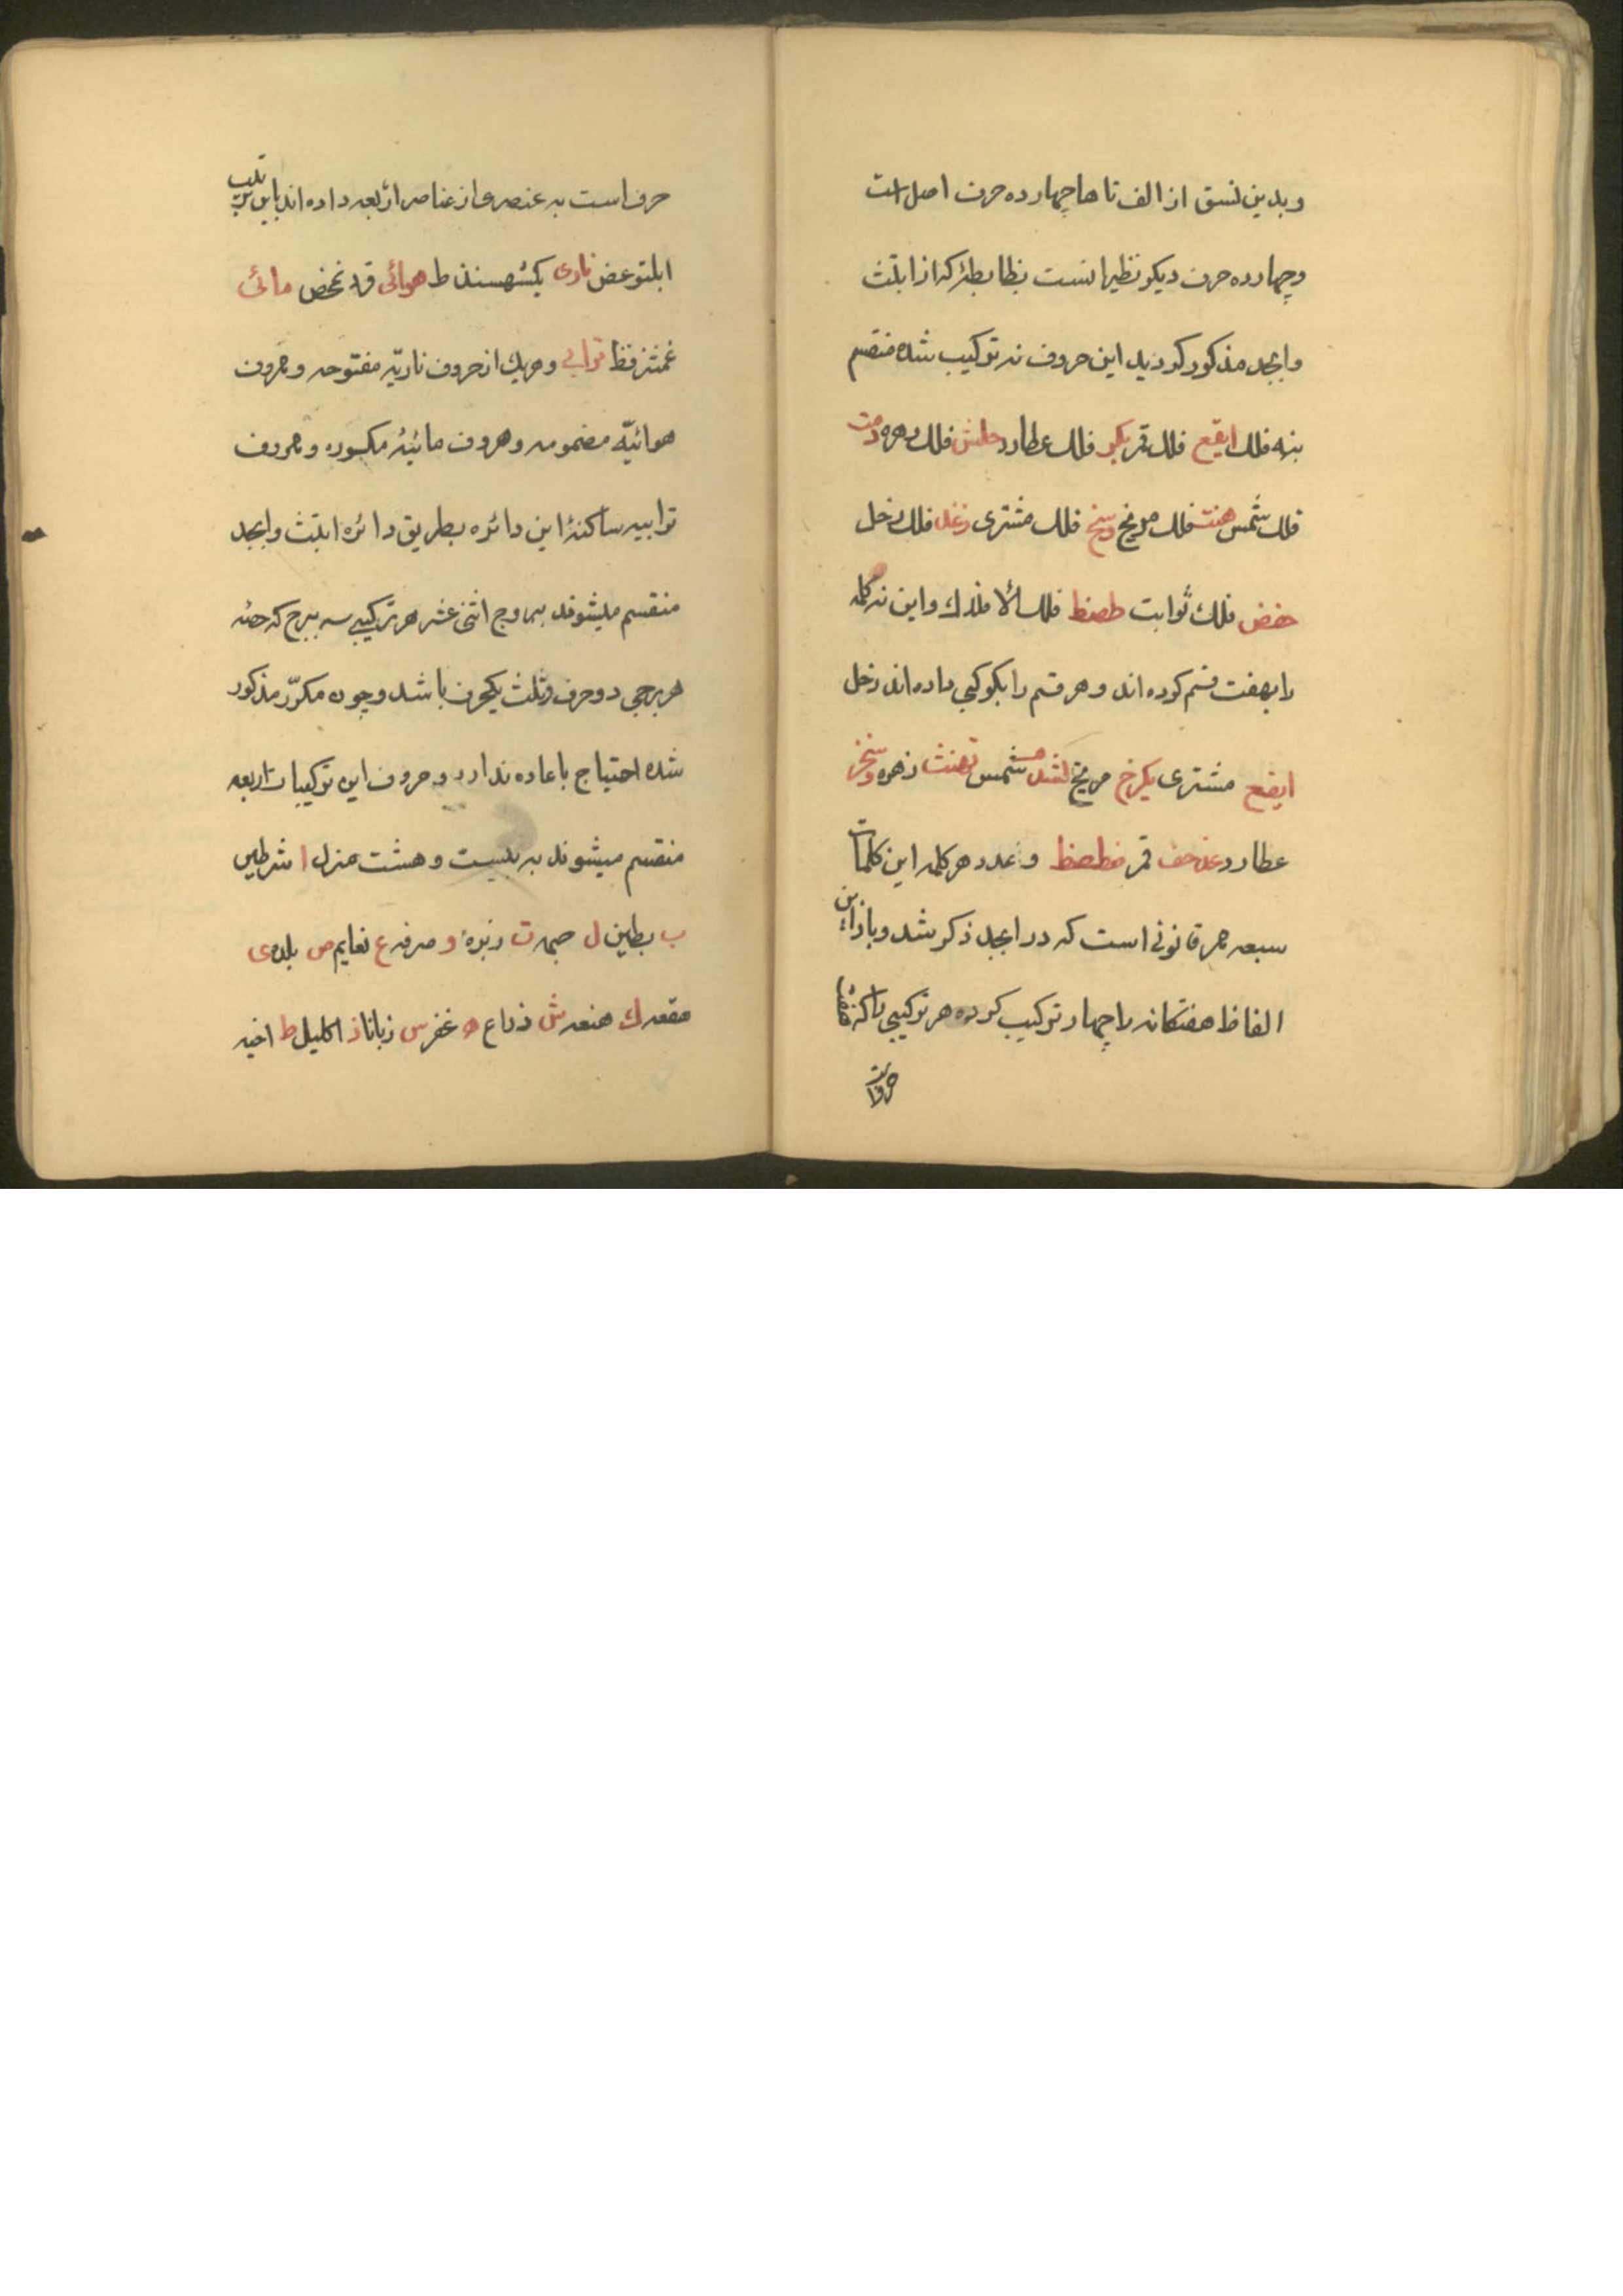 وبدین نسق از الف تا ها چهارده حرف اصل است
وچهارده حرف دیکر نظیر انست بظابطهٔ که از ابتث
وابجد مذکور کردید این حروف نه ترکیب شده منقسم
بنه فلك ایقع فلك قمر بکر فلك عطارد جلش فلك زهره دمت
فلك شمس هنث فلك مریخ وسخ فلك مشتری زعذ فلك زحل
حفض فلك ثوابت طصظ فلك الافلاك واین نه کلمه
را بهفت قسم کرده اند وهر قسم را بکوکبی داده اند زحل
ایقغ مشتری بکرخ مریخ شمس زهره
عطارد قمر وعدد هر کلمه این کلمات
سبعه بهر قانونی است که در ابجد ذکر شد وباز این
الفاظ هفتکانه را چهار ترکیب کرده هر ترکیبی را که
حرف است به عنصری از عناصر اربعه داده اند باین ترتیب
نازی هوائی مائی
ترابی وهریك از حروف ناریّه مفتوحه وحروف
هوائیّه مضمومه وحروف مائیّه مکسوره وحروف
ترابیه ساکنه این دائره بطریق دائره ابتث وابجد
منقسم میشوند ببروج اثنی عشر هر ترکیبی سه ببرج که حصّه
هر برجی دو حرف وثلث یکحرف باشد وچون مکرّر مذکور
شده احتیاج باعاده ندارد وحروف این ترکیبات اربعه
منقسم میشوند به بیست وهشت منزل ا شرطین
ب بطین ل جبهه ت زبره و صرفه ع نعایم ض بلده ی
هقعه ك هنعه ش ذراع ه غفر س زبانا ذ اکلیل ط اخبیه